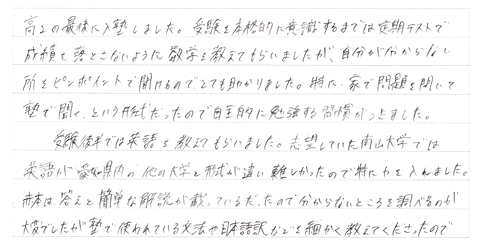 高2の最後に入塾しました。受験を本格的に意識するまでは定期テストで
成績を落とさないように数学を教えてもらいましたが、自分が分からない
所をピンポイントで聞けるのでとても助かりました。特に、家で問題を解いて
塾で聞く、という形式だったので自主的に勉強する習慣がつきました。
受験後半では英語を教えてもらいました。志望していた南山大学では
英語が愛知県内の他の大学と形式が違い難しかったので特に力を入れました。
赤本は答えと簡単な解説が載っているだったので分からないところを調べるのが
大変でしたが塾で使われている文法や日本語訳などを細かく教えてくださったので